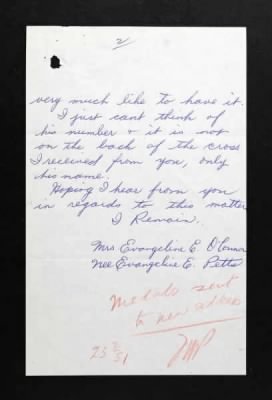 2
very much like to have it.
I just cant think of
his number & it is not
on the back of the cross
I received from you, only
his name.
Hoping I hear from you
in regards to this matter
I Remain.
Mrs Evangeline E. O'Connor
Nee Evangeline E. Petts
Medals sent
to new address
23 2/51